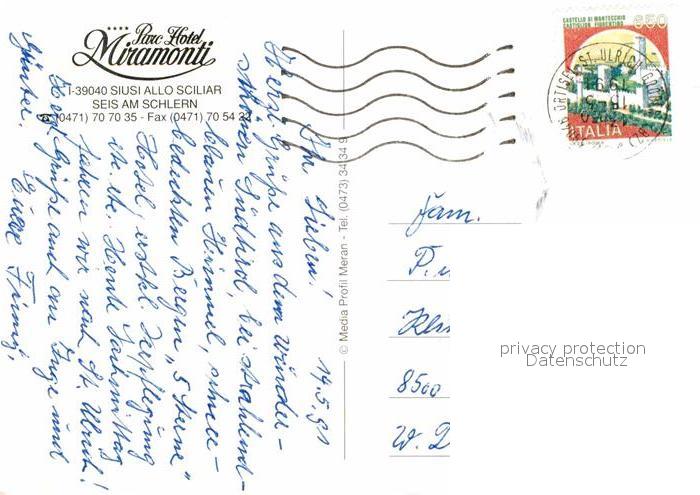 Parc Hotel
Miramonti
I-39040 SIUSI ALLO SCILIAR
SEIS AM SCHLERN
(0471) 70 70 35 - Fax (0471) 70 54 22
14.5.91
Ihr Lieben!
Herzl. Grüße aus dem wunder-
schönen Südtirol, bei strahlend-
blauen Himmel, schnee-
bedeckten Bergen, "5 Sterne"
Hotel, exkl. Verpflegung
Heute Nachmittag
fahren wir nach St. Ulrich!
Herzl. Grüße auch an Inge und
Günter.
© Media Profil Meran - Tel. (0473) 34 34 9
CASTELLO DI MONTECCHIO
CASTIGLION FIORENTINO
650
ITALIA
ORTISEI ST. ULRICH
Fam.
8500
W. D
privacy protection
Datenschutz